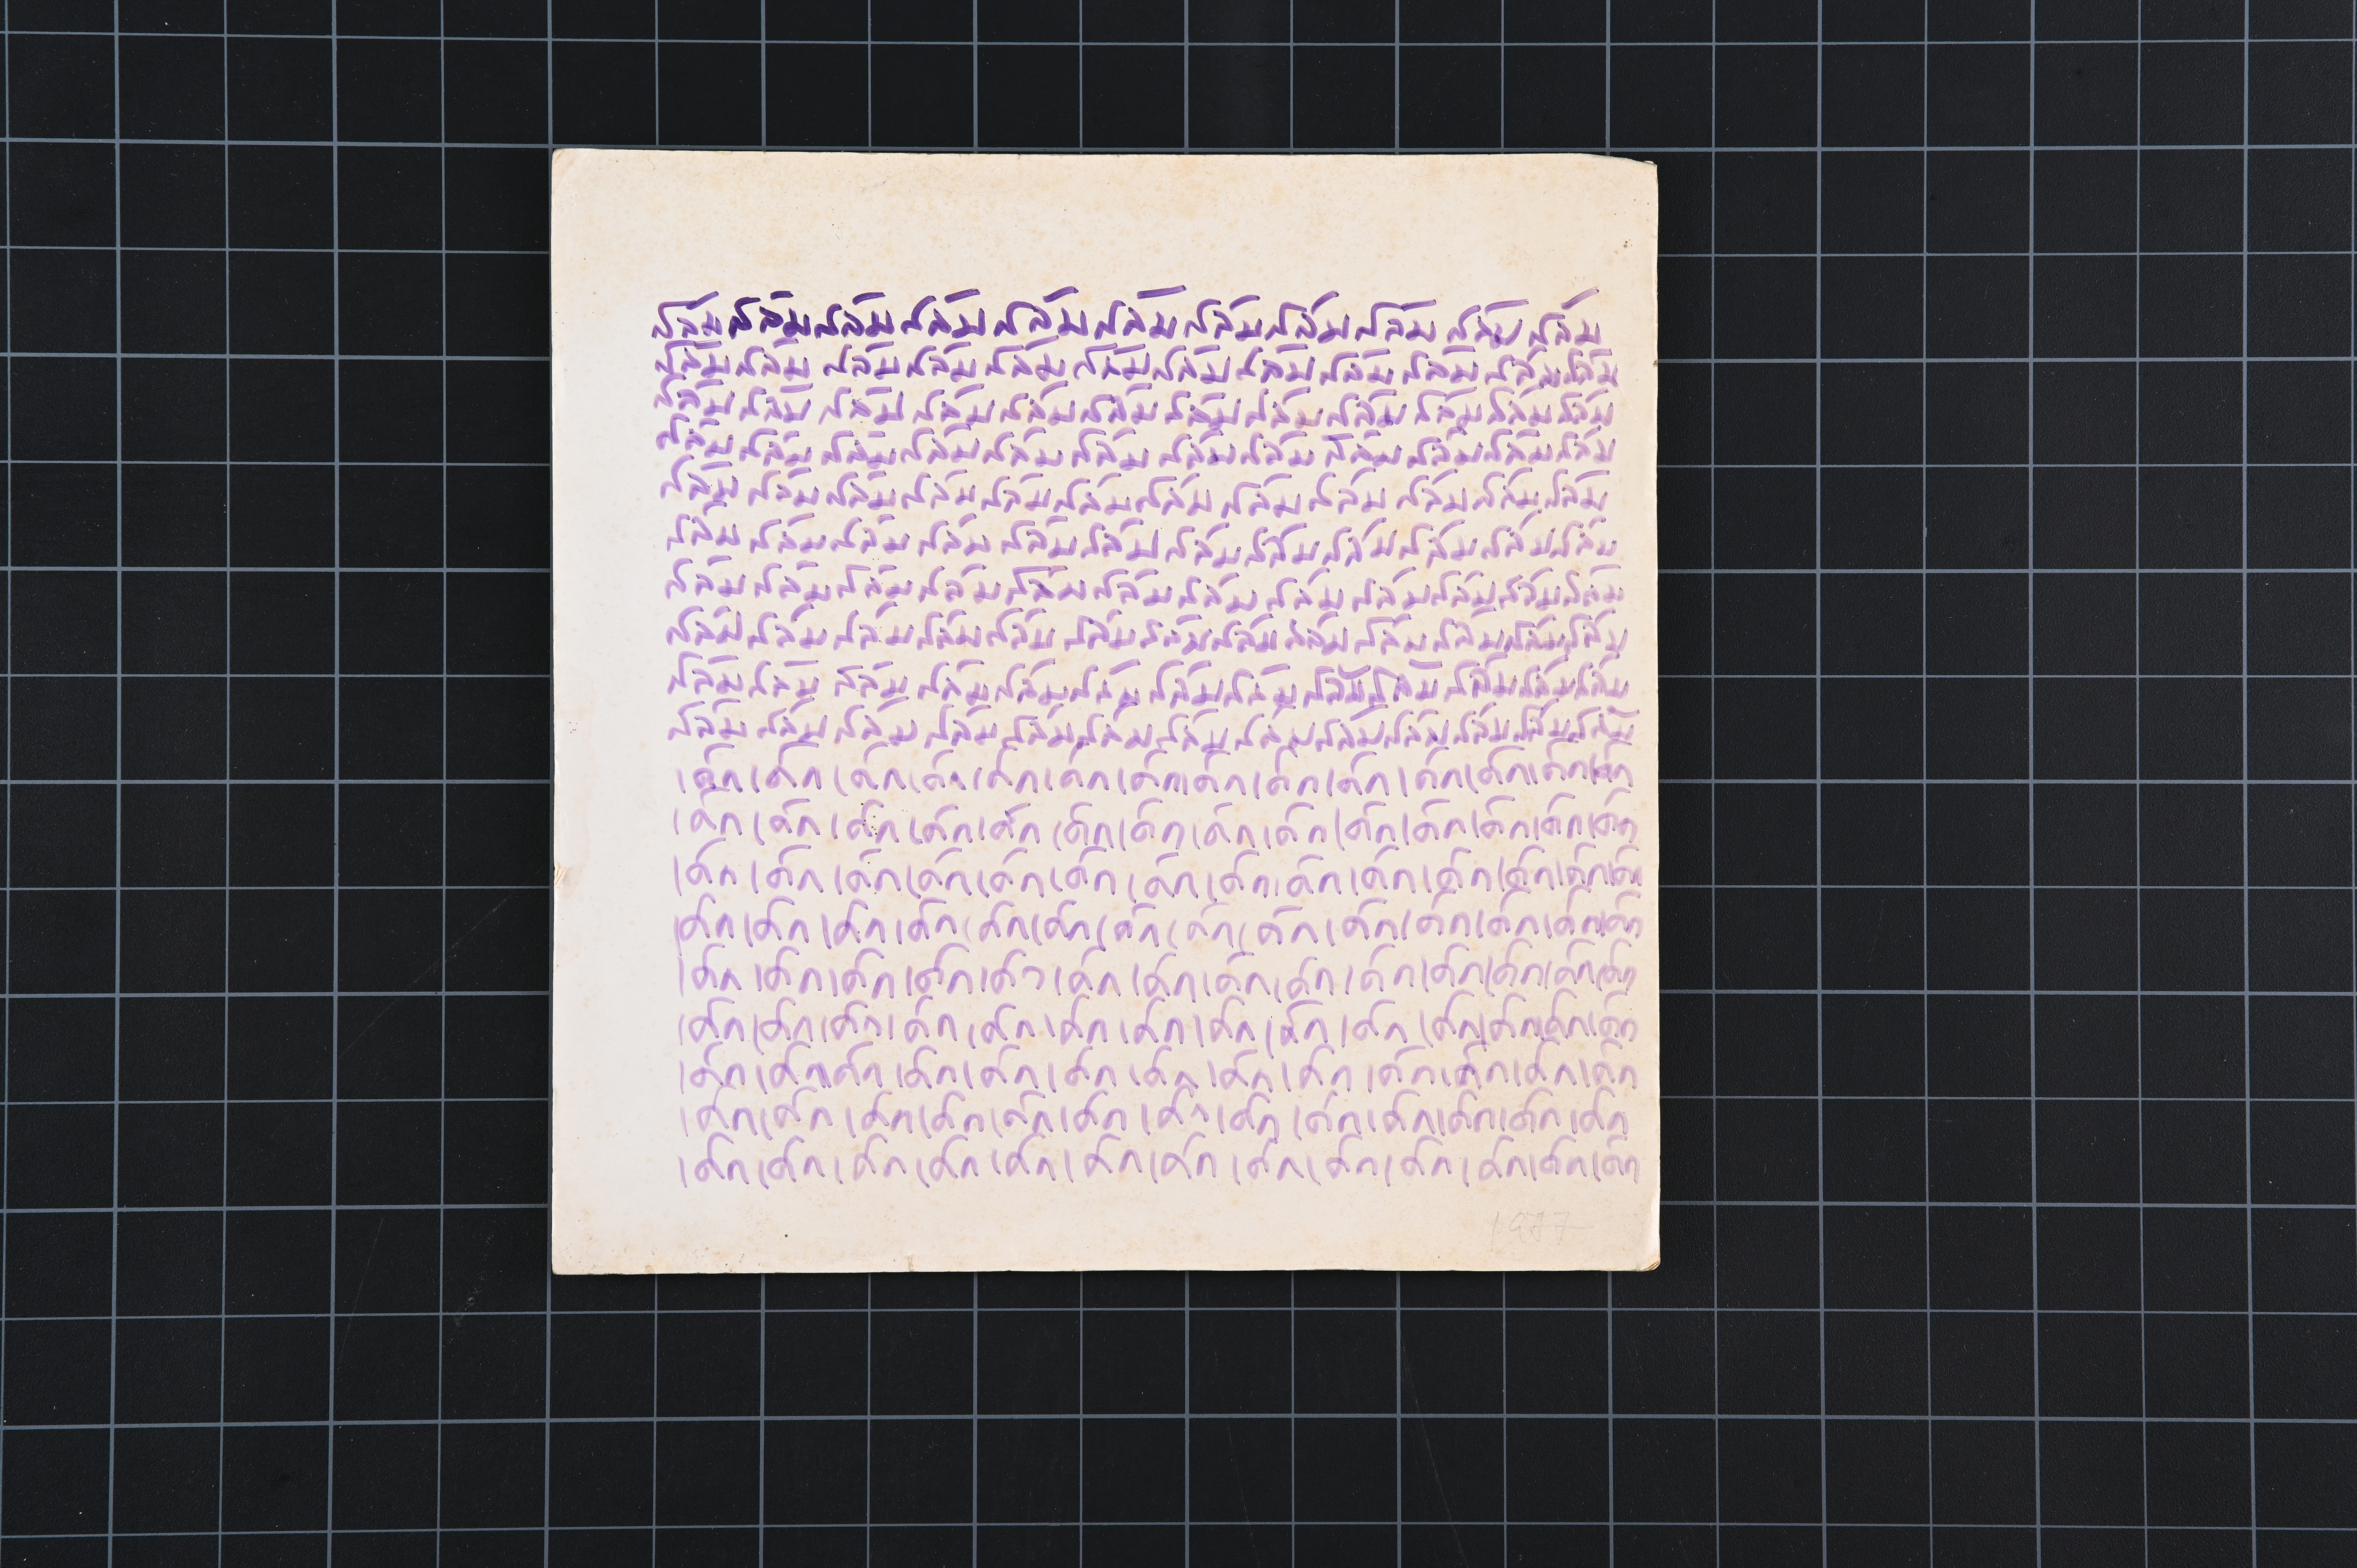 สลัม สลัม สลัม สลัม สลัม สลัม สลัม สลัม สลัม สลัม สลัม
สลัม สลัม สลัม สลัม สลัม สลัม สลัม สลัม สลัม สลัม สลัม สลัม
สลัม สลัม สลัม สลัม สลัม สลัม สลัม สลัม สลัม สลัม สลัม สลัม
สลัม สลัม สลัม สลัม สลัม สลัม สลัม สลัม สลัม สลัม สลัม สลัม
สลัม สลัม สลัม สลัม สลัม สลัม สลัม สลัม สลัม สลัม สลัม สลัม
สลัม สลัม สลัม สลัม สลัม สลัม สลัม สลัม สลัม สลัม สลัม สลัม
สลัม สลัม สลัม สลัม สลัม สลัม สลัม สลัม สลัม สลัม สลัม สลัม
สลัม สลัม สลัม สลัม สลัม สลัม สลัม สลัม สลัม สลัม สลัม สลัม สลัม
สลัม สลัม สลัม สลัม สลัม สลัม สลัม สลัม สลัม สลัม สลัม สลัม สลัม
สลัม สลัม สลัม สลัม สลัม สลัม สลัม สลัม สลัม สลัม สลัม สลัม สลัม
เด็ก เด็ก เด็ก เด็ก เด็ก เด็ก เด็ก เด็ก เด็ก เด็ก เด็ก เด็ก เด็ก เด็ก
เด็ก เด็ก เด็ก เด็ก เด็ก เด็ก เด็ก เด็ก เด็ก เด็ก เด็ก เด็ก เด็ก เด็ก
เด็ก เด็ก เด็ก เด็ก เด็ก เด็ก เด็ก เด็ก เด็ก เด็ก เด็ก เด็ก เด็ก เด็ก
เด็ก เด็ก เด็ก เด็ก เด็ก เด็ก เด็ก เด็ก เด็ก เด็ก เด็ก เด็ก เด็ก เด็ก
เด็ก เด็ก เด็ก เด็ก เด็ก เด็ก เด็ก เด็ก เด็ก เด็ก เด็ก เด็ก เด็ก เด็ก
เด็ก เด็ก เด็ก เด็ก เด็ก เด็ก เด็ก เด็ก เด็ก เด็ก เด็ก เด็ก เด็ก เด็ก
เด็ก เด็ก เด็ก เด็ก เด็ก เด็ก เด็ก เด็ก เด็ก เด็ก เด็ก เด็ก เด็ก
เด็ก เด็ก เด็ก เด็ก เด็ก เด็ก เด็ก เด็ก เด็ก เด็ก เด็ก เด็ก เด็ก
เด็ก เด็ก เด็ก เด็ก เด็ก เด็ก เด็ก เด็ก เด็ก เด็ก เด็ก เด็ก เด็ก
1977